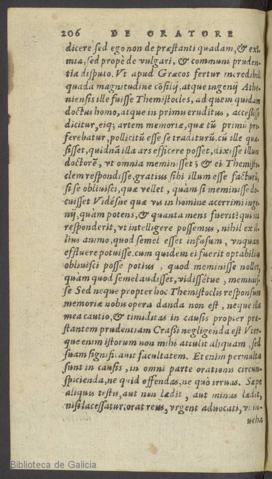 206 DE ORATORE
dicere sed ego non de præstanti quadam, & exi-
mia, sed propè de vulgari, & communi pruden-
tia disputo. Vt apud Græcos fertur incredibili
quada magnitudine cōsilij, atque ingenij Athe-
niensis ille fuisse Themistocles, ad quem quidam
doctus homo, atque in primis eruditus, accessisse
dicitur, eiq; artem memoriæ, quæ tū primū pro-
ferebatur, pollicitus esse se traditurū. cū ille quæ-
sisset, quidnā illa ars efficere posset, dixisse illum
doctorē, vt omnia meminisset; & ei Themisto-
clem respondisse, gratius sibi illum esse facturū,
si se obliuisci, quæ vellet, quàm si meminisse do-
cuisset Vidésne quæ vis in homine acerrimi inge-
nij, quàm potens, & quanta mens fuerit? qui ita
responderit, vt intelligere possemus, nihil ex il-
lius animo, quod semel esset infusum, vnquam
effluere potuisse. cum quidem ei fuerit optabilius
obliuisci posse potius, quod meminisse nollet,
quàm quod semel audisset, vidissétue, meminis-
se Sed neque propter hoc Themistoclis responsum
memoriæ nobis opera danda non est, neque illa
mea cautio, & timiditas in causis propter præ-
stantem prudentiam Crassi negligenda est Vter-
que enim istorum non mihi attulit aliquam, sed
suam significauit facultatem. Etenim permulta
sunt in causis, in omni parte orationis circun-
spicienda, ne quid offendas, ne quo irruas. Sæpe
aliquis testis, aut non lædit, aut minus lædit,
nisi lacessatur, orat reus, vrgent aduocati, vt in-
ueha
Biblioteca de Galicia